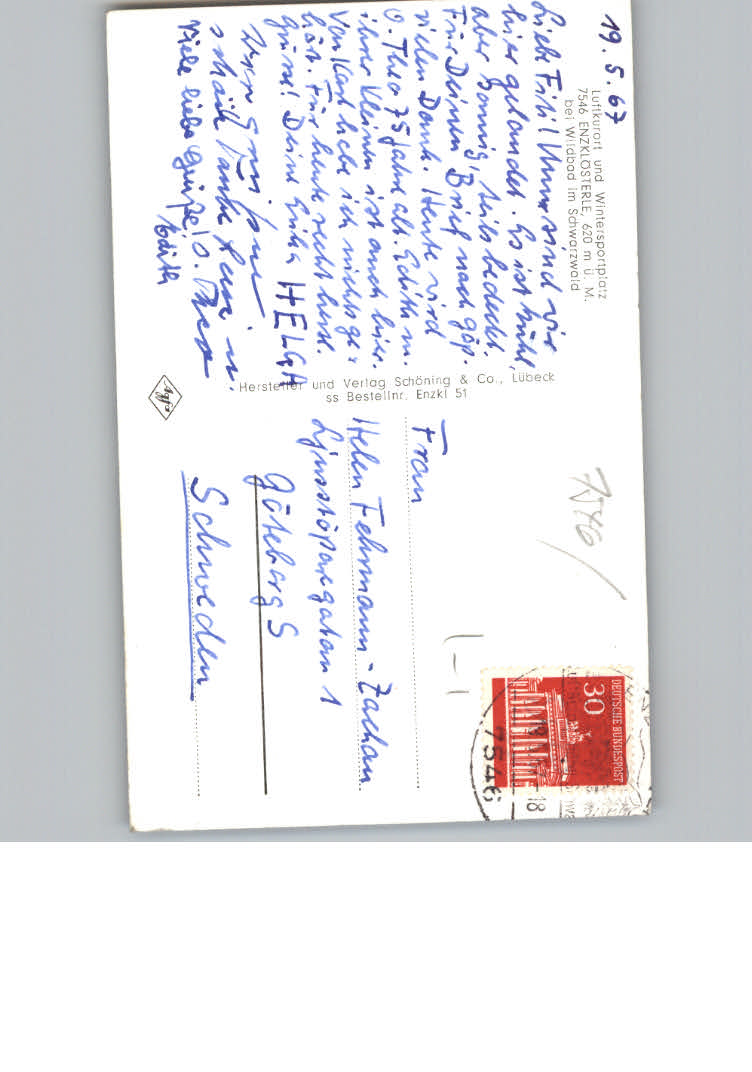 19. 5. 67
Luftkurort und Wintersportplatz
7546 ENZKLÖSTERLE, 620 m ü. M.
bei Wildbad im Schwarzwald
Liebe Fifi! Nun sind wir
hier gelandet. Es ist kühl,
aber sonnig, teils bedeckt.
Für Deinen Brief nach Göp.
vielen Dank. Heute wird
O. Theo 75 Jahre alt. Edith m.
ihrer Kleinen ist auch hier.
Von Karl habe ich nichts ge-
hört. Für heute recht herzl.
Grüsse! Deine Erika HELGA
Tante
Viele liebe Grüße! O. Theo
Edith
Hersteller und Verlag Schöning & Co., Lübeck
ss Bestellnr. Enzkl 51
Agfa
Frau
Helen Fehrmann - Zachau
Ljusstöparegatan 1
Göteborg S
Schweden
7546
DEUTSCHE BUNDESPOST
30
7546
18